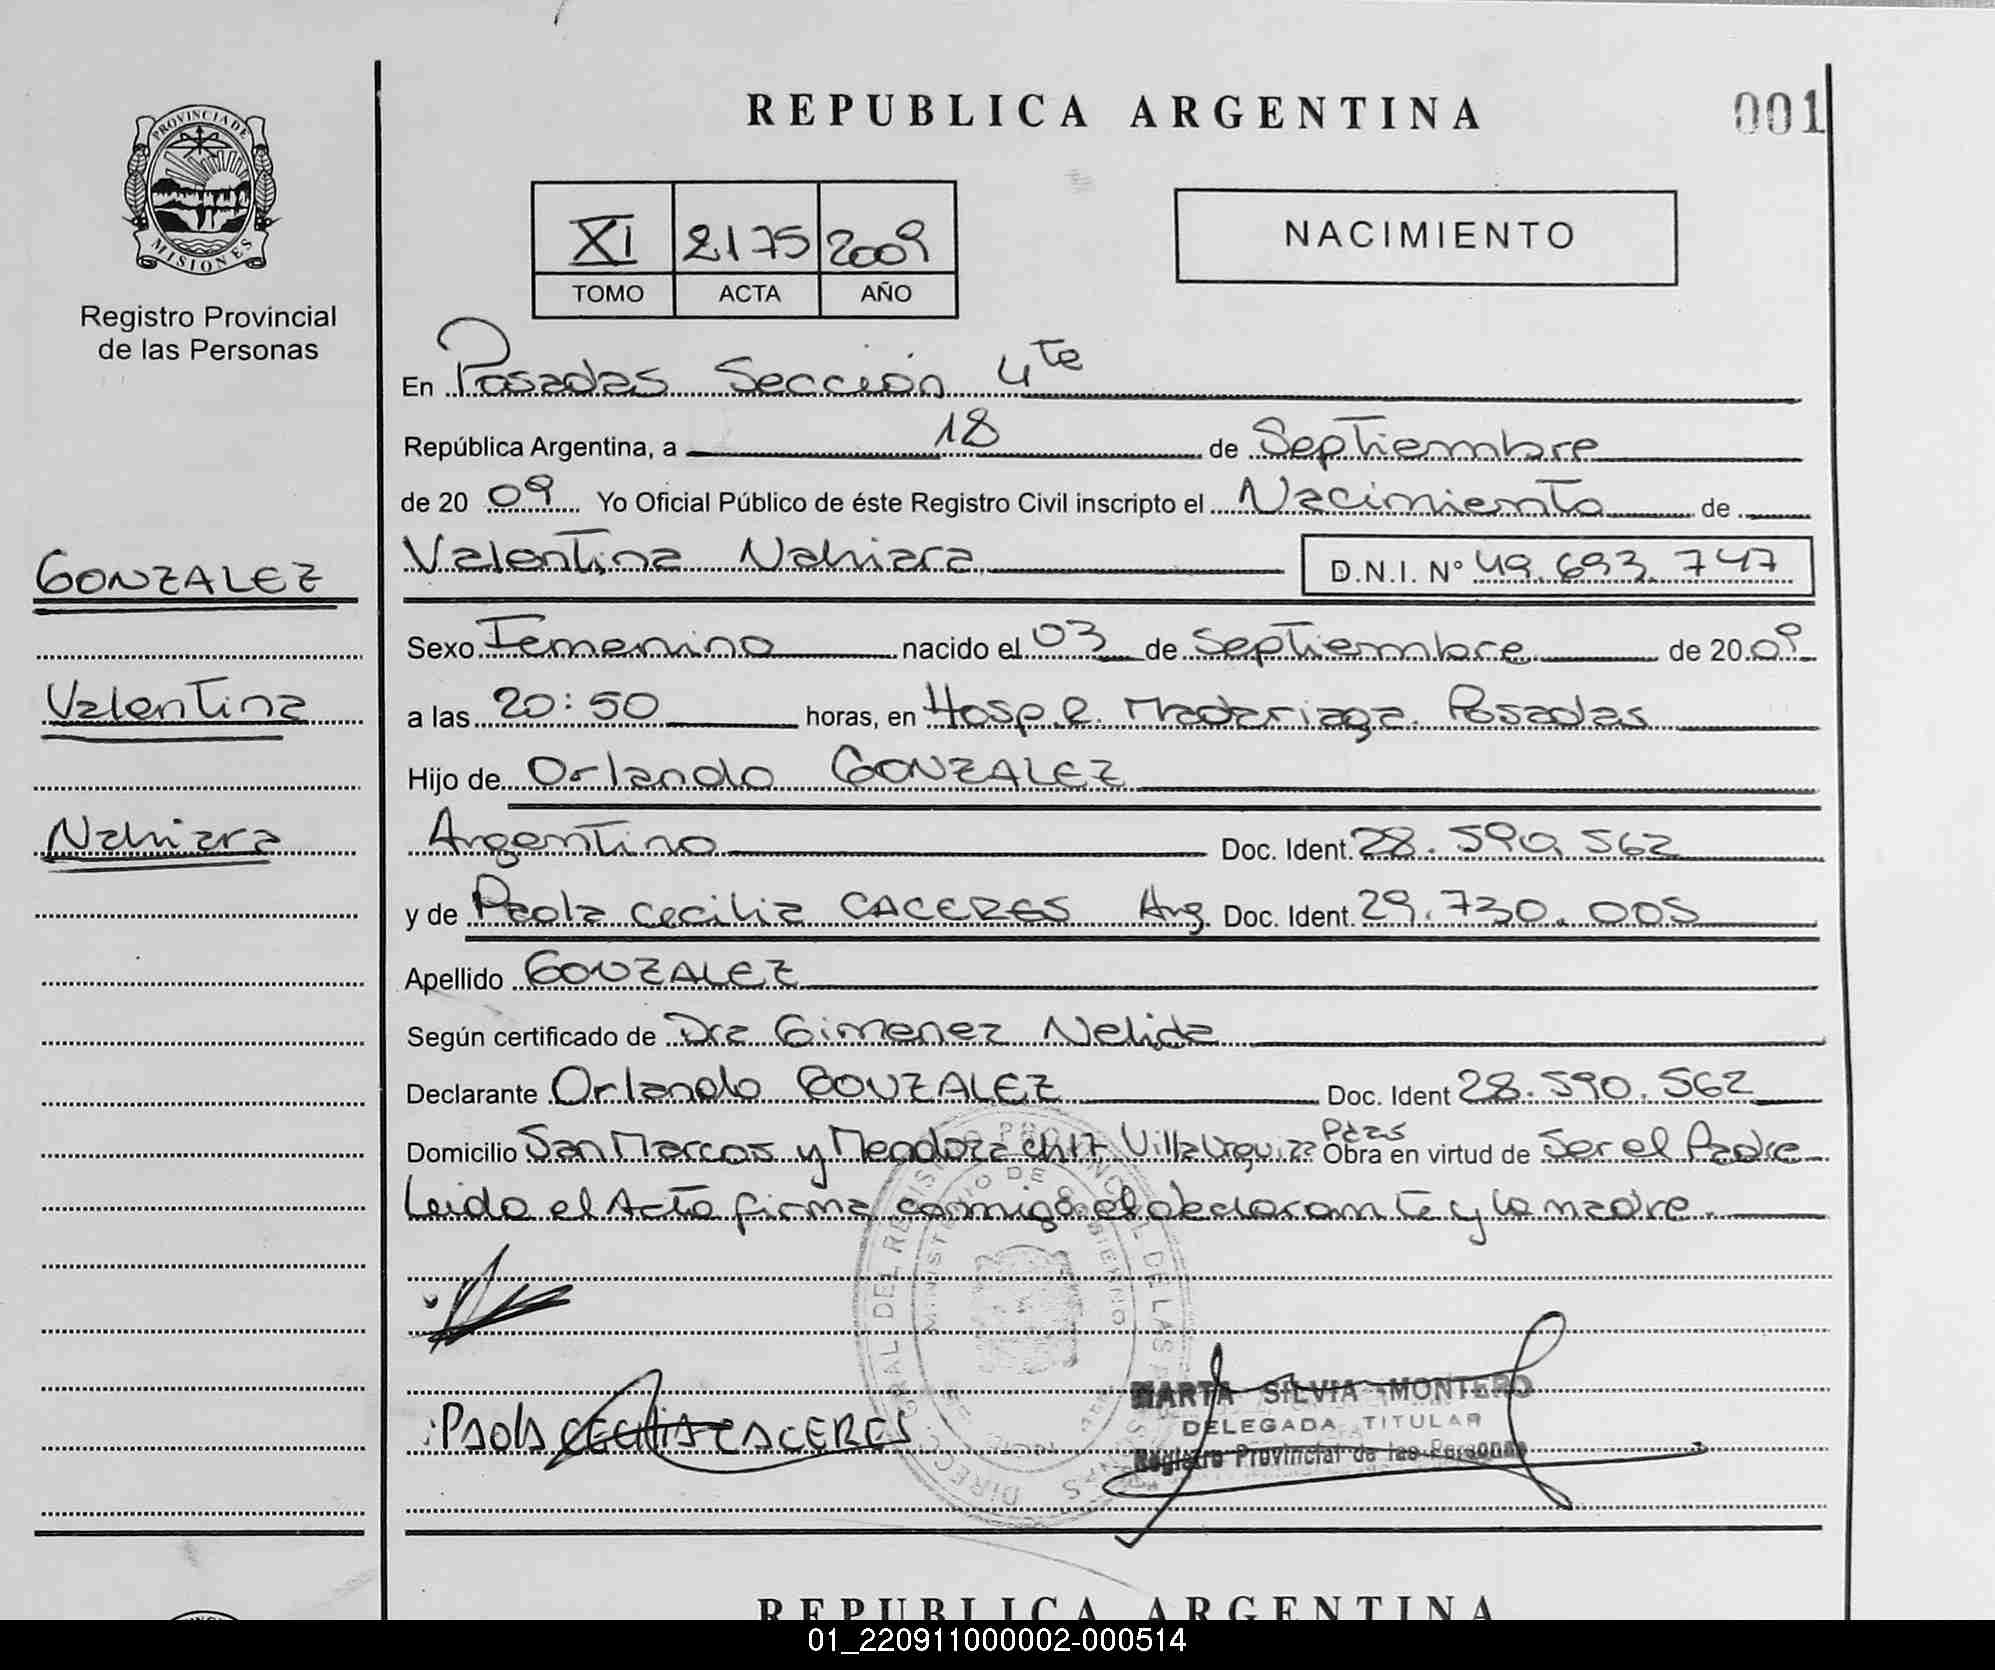 REPUBLICA ARGENTINA
001
PROVINCIA DE
MISIONES
Registro Provincial
de las Personas
XI 2175 2009
TOMO ACTA AÑO
NACIMIENTO
En Posadas Sección 4ta
República Argentina, a 18 de Septiembre
de 20 09 Yo Oficial Público de éste Registro Civil inscripto el Nacimiento de
GONZALEZ
Valentina Nahiara D.N.I. N° 49.693.747
Sexo Femenino nacido el 03 de Septiembre de 20 09
Valentina
a las 20:50 horas, en Hosp. R. Madariaga Posadas
Hijo de Orlando GONZALEZ
Nahiara
Argentino Doc. Ident. 28.590.562
y de Paola Cecilia CACERES Arg. Doc. Ident. 29.730.005
Apellido GONZALEZ
Según certificado de Dra Gimenez Nelida
Declarante Orlando GONZALEZ Doc. Ident 28.590.562
Domicilio San Marcos y Mendoza ch 17 Villa Urquiza Pdas Obra en virtud de Ser el Padre
Leido el Acta firma conmigo el declarante y la madre.
DIRECC. GRAL DEL REGISTRO PROVINCIAL DE LAS PERSONAS
MINISTERIO DE GOBIERNO
MARTA SILVIA MONTERO
DELEGADA TITULAR
Registro Provincial de las Personas
PAOLA CECILIA CACERES
REPUBLICA ARGENTINA
01_220911000002-000514